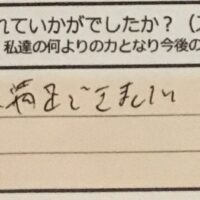 れていかがでしたか？（
私達の何よりの力となり今後の
満足できました